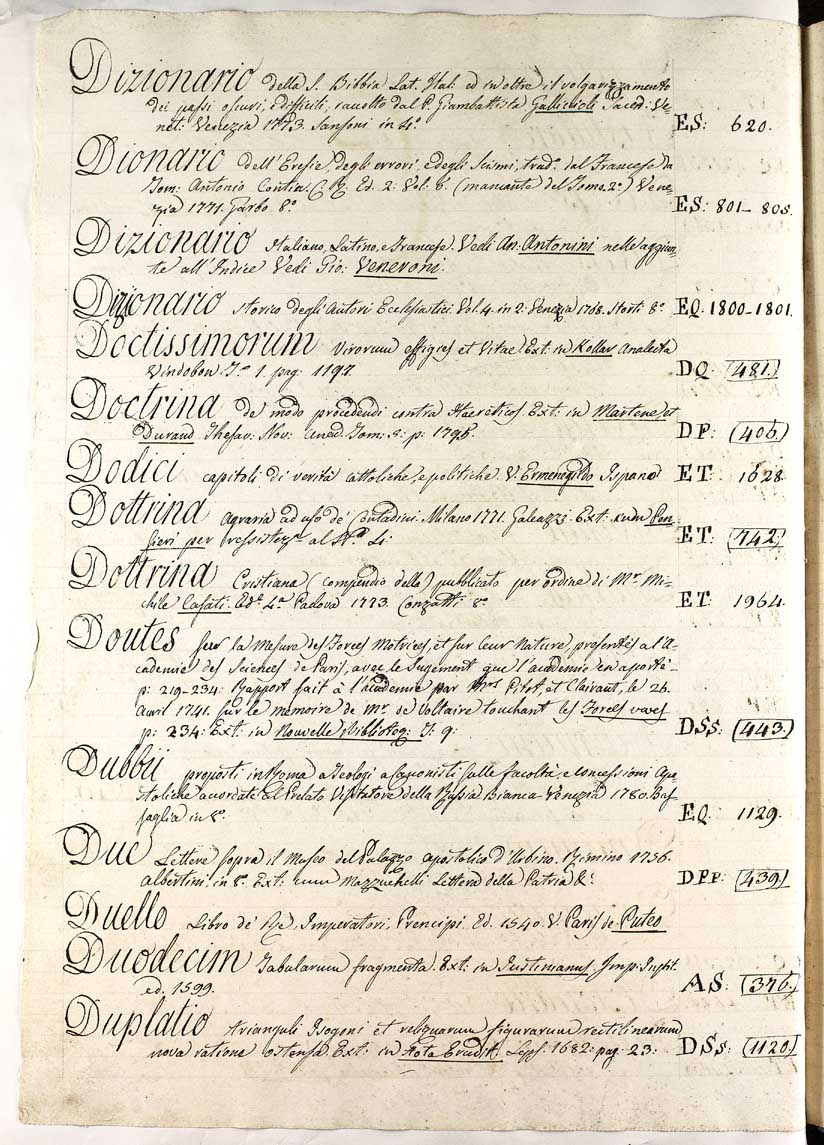 Dizionario della S. Bibbia Lat. Ital: ed inoltre il volgarizzamento
dei passi oscuri, e difficili, raccolto dal P. Giambattista Gallicioli Sacerd: Ve-
net: Venezia 1773. Sansoni in 4.º ES: 620.
Dionario dell'Eresie, degli errori, e degli Scismi, trad.º dal Francese da
Tom: Antonio Contin. C. R. Ed. 2: Vol: 6. (mancante del Tomo 2.º) Vene-
zia 1771. Garbo 8.º ES: 801-805.
Dizionario Italiano, Latino, e Francese. Vedi An. Antonini nelle aggiun-
te all'Indice Vedi Gio: Veneroni.
Dizionario storico degli Autori Ecclesiastici. Vol. 4. in 2: Venezia 1768. Storti 8.º EQ. 1800-1801.
Doctissimorum Virorum effigies et Vitae. Ext: in Kollar Analecta
Vindobon T.º 1. pag: 1197 DQ. (481.)
Doctrina de modo procedendi contra Haereticos. Ext: in Martene, et
Durand Thesau: Nov: Aned: Tom: 5: p: 1795. DP: (406.)
Dodici capitoli di verità cattoliche, e politiche V. Ermenegildo Ispano ET: 1628.
Dottrina Agraria ad uso de' Contadini. Milano 1771. Galeazzi. Ext: cum Pen-
sieri per al Nº Li: ET: (742.)
Dottrina Cristiana (compendio della) pubblicato per ordine di Mr. Mi-
chile Casati. Ed.e 4.a Padova 1773. Conzatti 8.º ET: 1964.
Doutes sur la Mesure des Forces Motrices, et sur leur Nature, presentés a l'A-
cademie des Sciences de Paris, avec le Jugement que l'academie en a porté-
p: 219-234: Rapport fait à l'academie par Mrs Pitot, et Clairaut, le 26.
Avril 1741. sur le memoire de Mr. de Voltaire touchant les Forces vives
p: 234: Ext: in Nouvelle Biblioteq: T: 9: DSS: (443.)
Dubbii proposti in Roma a Teologi a Canonisti sulle facoltà, e concessioni Apo-
stoliche accordate al Prelato Visitatore della Russia Bianca - Venezia 1780. Bas-
saglia in 8.º EQ: 1129.
Due Lettere sopra il Museo del Palazzo apostolico d'Urbino. Rimino 1756.
Albertini, in 8.º Ext: cum Mazzuchelli Lettera della Patria &c. DPP: (439.)
Duello Libro de' Re, Imperatori, Prencipi. Ed. 1540. V. Paris de Puteo
Duodecim Tabularum fragmenta. Ext: in Justinianus Imp: Instit.
ed. 1599. AS: (376.)
Duplatio trianguli Isogoni et reliquarum figurarum rectilinearum
nova ratione ostensa. Ext: in Acta Erudit. Lips: 1682: pag: 23: DSS: (1120.)